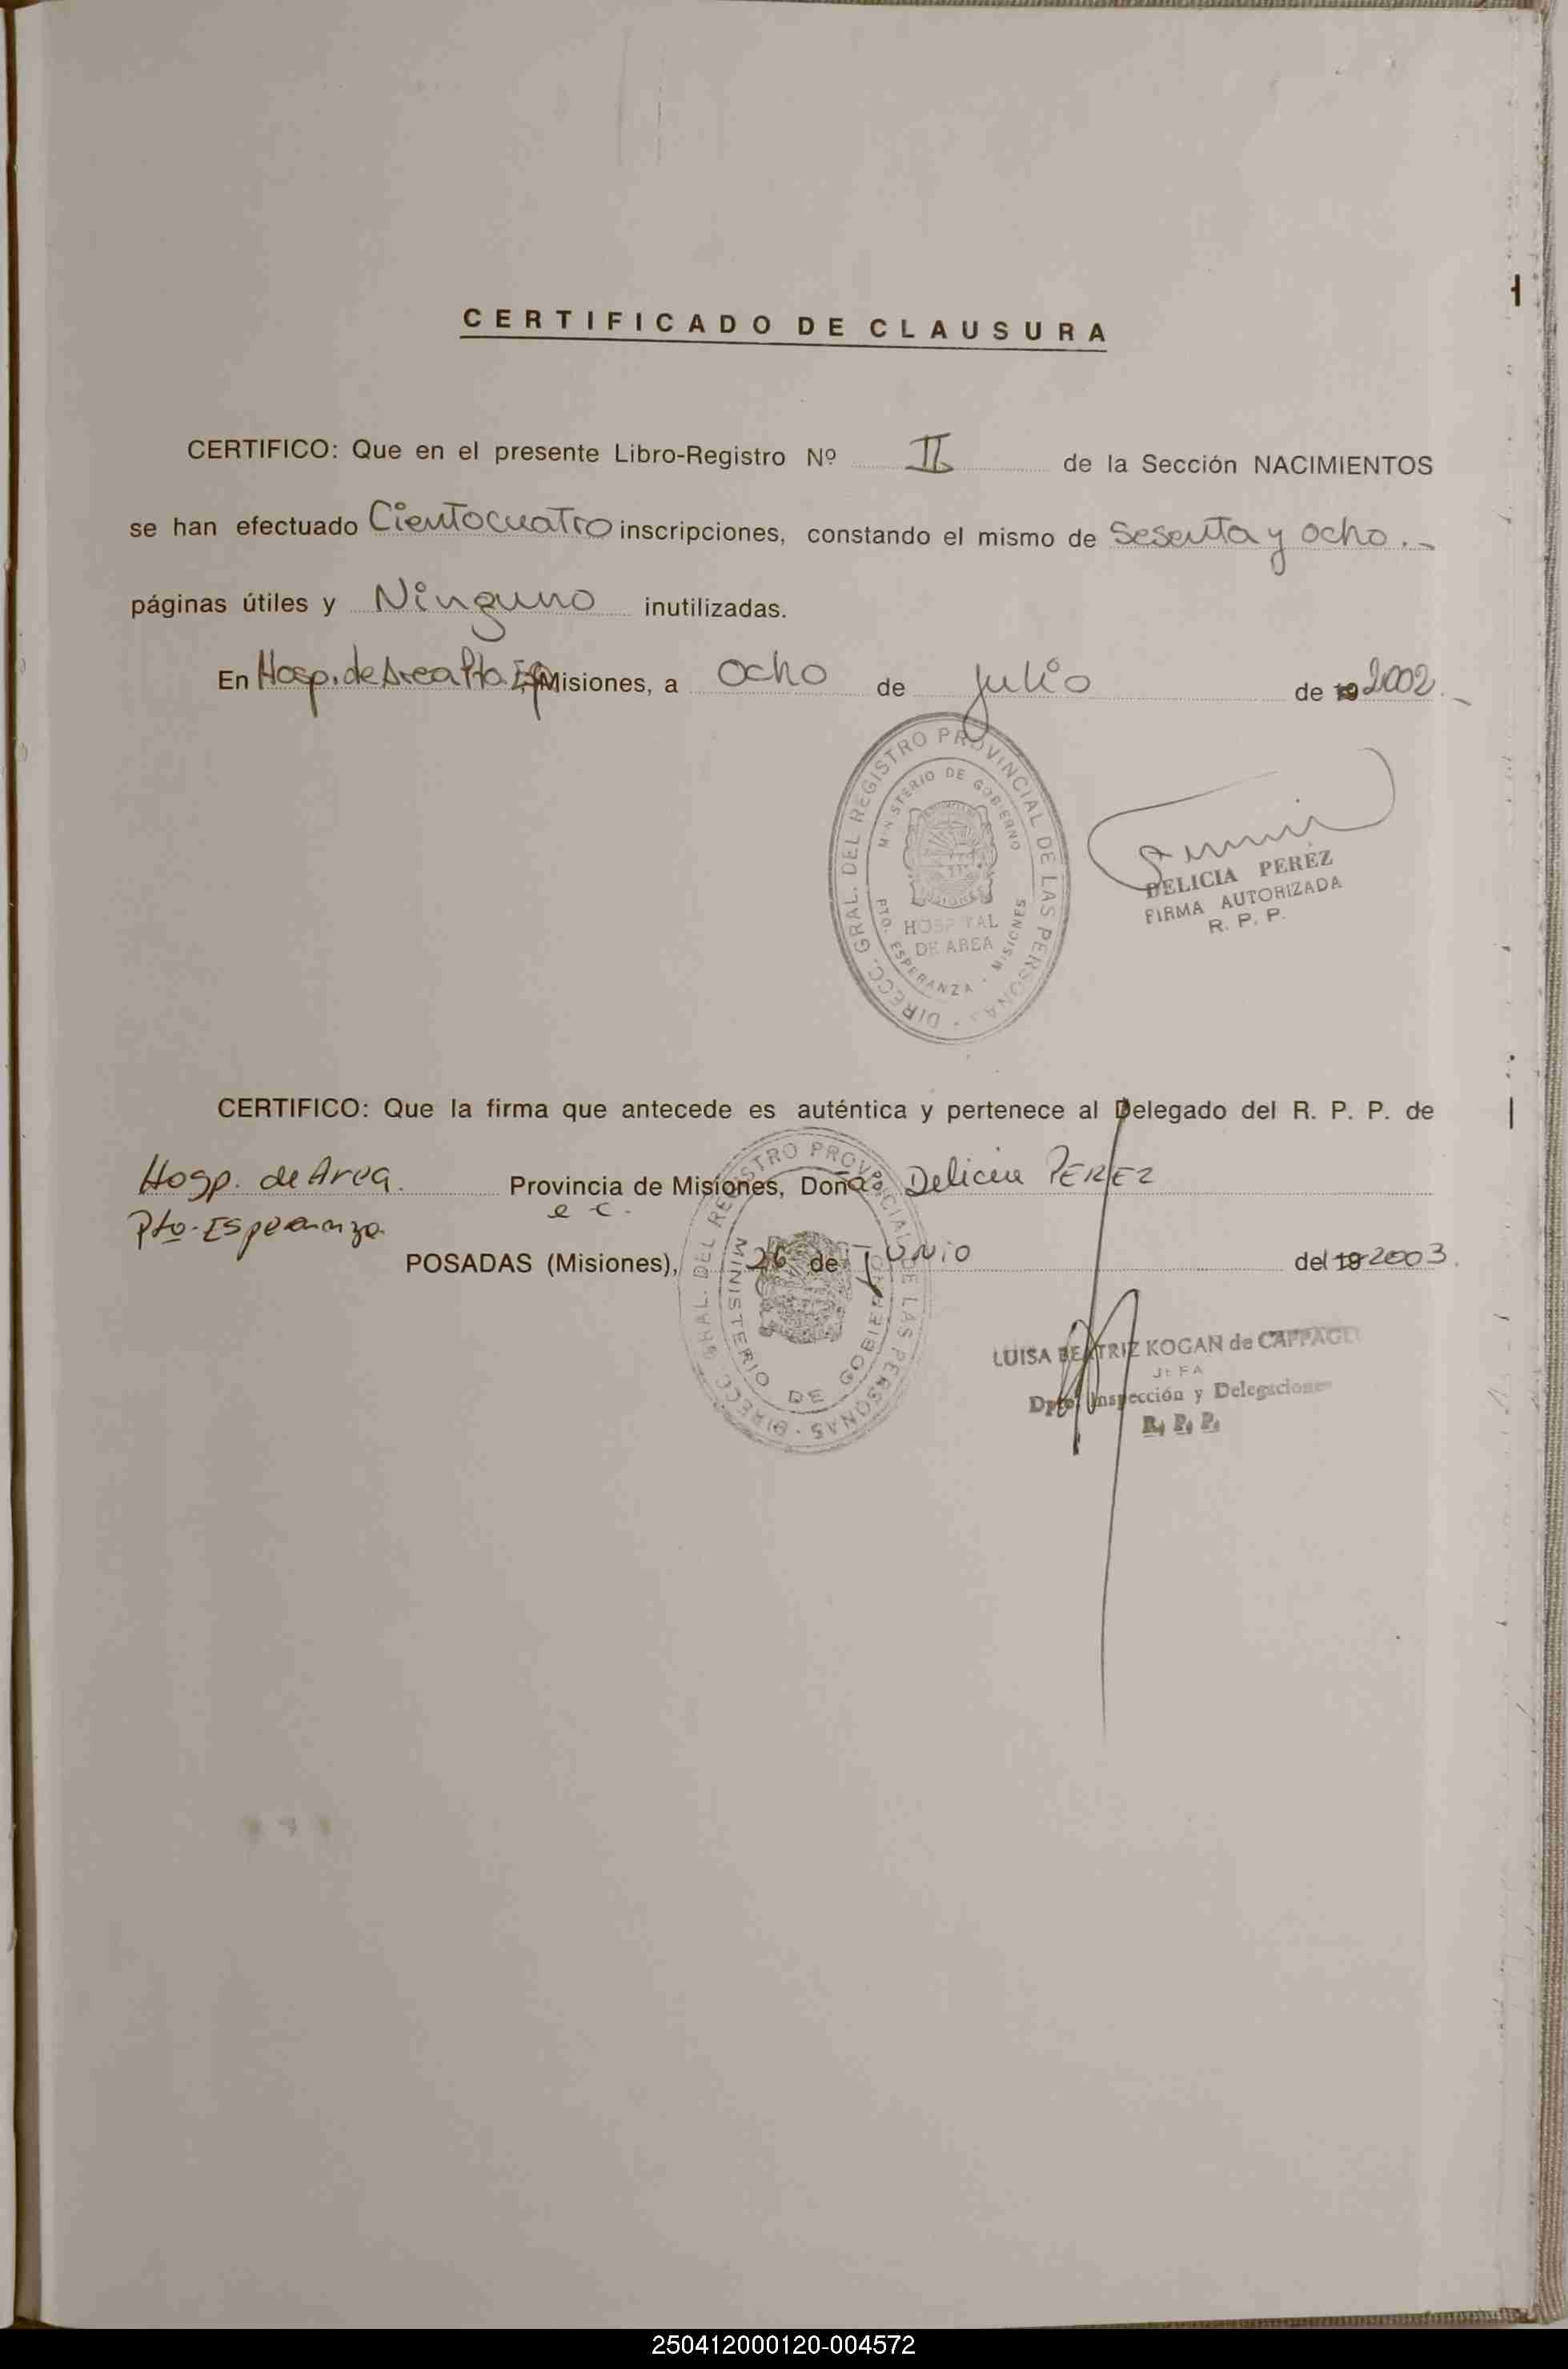 CERTIFICADO DE CLAUSURA
CERTIFICO: Que en el presente Libro-Registro Nº II de la Sección NACIMIENTOS
se han efectuado Cientocuatro inscripciones, constando el mismo de Sesenta y ocho.-
páginas útiles y Ninguno inutilizadas.
En Hosp. de Area Pto. Esp Misiones, a ocho de julio de 19 2002.-
DIRECC. GRAL. DEL REGISTRO PROVINCIAL DE LAS PERSONAS
MINISTERIO DE GOBIERNO
HOSPITAL
DE AREA
PTO. ESPERANZA - MISIONES
DELICIA PEREZ
FIRMA AUTORIZADA
R. P. P.
CERTIFICO: Que la firma que antecede es auténtica y pertenece al Delegado del R. P. P. de
Hosp. de Area. Provincia de Misiones, Doña Delicia PEREZ
Pto. Esperanza e c.
POSADAS (Misiones), 26 de Junio del 19 2003.
DIRECC. GRAL. DEL REGISTRO PROVINCIAL DE LAS PERSONAS
MINISTERIO DE GOBIERNO
LUISA BEATRIZ KOGAN de
JEFA
Dpto. Inspección y Delegaciones
R. P. P.
250412000120-004572